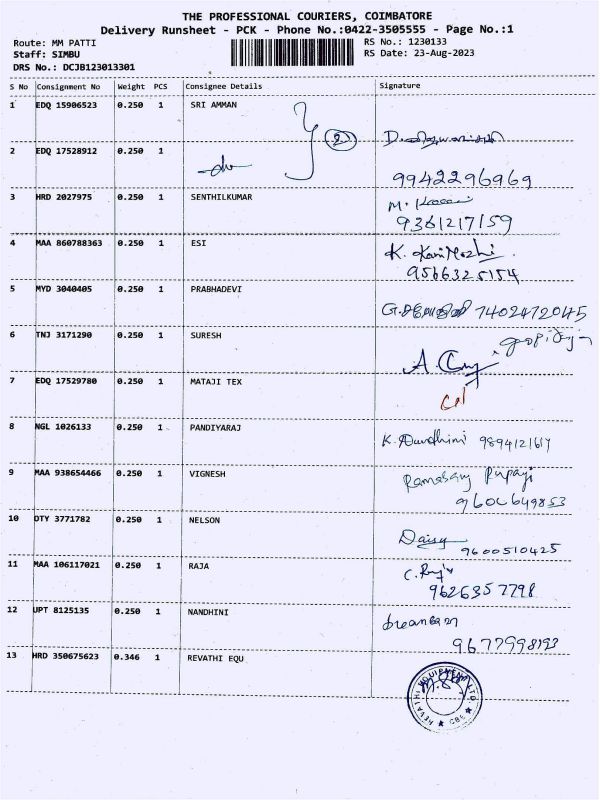 THE PROFESSIONAL COURIERS, COIMBATORE
Delivery Runsheet - PCK - Phone No.:0422-3505555 - Page No.:1
Route: MM PATTI RS No.: 1230133
Staff: SIMBU RS Date: 23-Aug-2023
DRS No.: DCJB123013301
S No Consignment No Weight PCS Consignee Details Signature
1 EDQ 15906523 0.250 1 SRI AMMAN
2
2 EDQ 17528912 0.250 1
9942296969
3 HRD 2027975 0.250 1 SENTHILKUMAR M.
9361217159
4 MAA 860788363 0.250 1 ESI K. KaniMozhi
9566325154
5 MYD 3040405 0.250 1 PRABHADEVI
7402472045
6 TNJ 3171290 0.250 1 SURESH
A.
7 EDQ 17529780 0.250 1 MATAJI TEX
8 NGL 1026133 0.250 1 PANDIYARAJ
K. Nandhini 9894121617
9 MAA 938654466 0.250 1 VIGNESH
9600649853
10 OTY 3771782 0.250 1 NELSON
Daisy 9600510425
11 MAA 106117021 0.250 1 RAJA C.
9626357798
12 UPT 8125135 0.250 1 NANDHINI
9677998193
13 HRD 350675623 0.346 1 REVATHI EQU
REVATHI EQUIPMENT LTD. ★ CBE ★